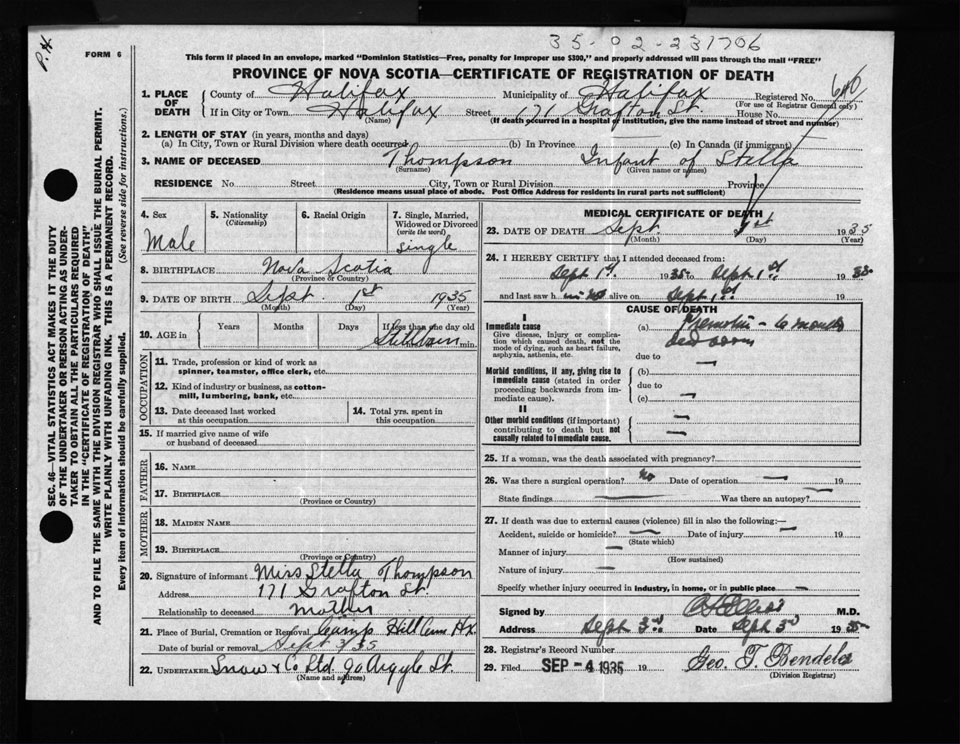 P.H.
35-02-231706
FORM 6
This form if placed in an envelope, marked "Dominion Statistics—Free, penalty for improper use $300," and properly addressed will pass through the mail "FREE"
PROVINCE OF NOVA SCOTIA—CERTIFICATE OF REGISTRATION OF DEATH
1. PLACE OF DEATH
County of Halifax Municipality of Halifax Registered No.
(For use of Registrar General only)
If in City or Town Halifax Street 171 Grafton St. House No.
(Name) (If death occurred in a hospital or institution, give the name instead of street and number)
2. LENGTH OF STAY (in years, months and days)
(a) In City, Town or Rural Division where death occurred (b) In Province (c) In Canada (if immigrant)
3. NAME OF DECEASED Thompson Infant of Stella
(Surname) (Given name or names)
RESIDENCE No. Street City, Town or Rural Division Province
(Residence means usual place of abode. Post Office Address for residents in rural parts not sufficient)
4. Sex Male
5. Nationality (Citizenship)
6. Racial Origin
7. Single, Married, Widowed or Divorced (write the word) single
8. BIRTHPLACE Nova Scotia
9. DATE OF BIRTH Sept. 1st 1935
(Month) (Day) (Year)
10. AGE in Years Months Days If less than one day old
Stillborn min.
OCCUPATION
11. Trade, profession or kind of work as spinner, teamster, office clerk, etc.
12. Kind of industry or business, as cotton-mill, lumbering, bank, etc.
13. Date deceased last worked at this occupation
14. Total yrs. spent in this occupation
15. If married give name of wife or husband of deceased
FATHER
16. NAME
17. BIRTHPLACE
(Province or Country)
MOTHER
18. MAIDEN NAME
19. BIRTHPLACE
(Province or Country)
20. Signature of informant Miss Stella Thompson
Address 171 Grafton St.
Relationship to deceased Mother
21. Place of Burial, Cremation or Removal Camp Hill Cem Hx.
Date of burial or removal Sept 3/35
22. UNDERTAKER Snow & Co Ltd. 90 Argyle St.
(Name and address)
MEDICAL CERTIFICATE OF DEATH
23. DATE OF DEATH Sept. 1st 1935
(Month) (Day) (Year)
24. I HEREBY CERTIFY that I attended deceased from:
Sept 1st 1935 to Sept 1st 1935
and last saw h alive on Sept 1st 19
CAUSE OF DEATH
I
Immediate cause
Give disease, injury or complication which caused death, not the mode of dying, such as heart failure, asphyxia, asthenia, etc.
(a) 6 months
due to —
Morbid conditions, if any, giving rise to immediate cause (stated in order proceeding backwards from immediate cause).
(b)
due to
(c) —
II
Other morbid conditions (if important) contributing to death but not causally related to immediate cause.
25. If a woman, was the death associated with pregnancy?
26. Was there a surgical operation? No Date of operation — 19
State findings — Was there an autopsy? —
27. If death was due to external causes (violence) fill in also the following:—
Accident, suicide or homicide? — Date of injury — 19
(State which)
Manner of injury —
(How sustained)
Nature of injury —
Specify whether injury occurred in industry, in home, or in public place —
Signed by M.D.
Address Sept 3rd Date Sept 3rd 1935
28. Registrar's Record Number
29. Filed SEP - 4 1935 19
(Division Registrar)
SEC. 46—VITAL STATISTICS ACT MAKES IT THE DUTY
OF THE UNDERTAKER OR PERSON ACTING AS UNDER-
TAKER TO OBTAIN ALL THE PARTICULARS REQUIRED
IN THE "CERTIFICATE OF REGISTRATION OF DEATH"
AND TO FILE THE SAME WITH THE DIVISION REGISTRAR WHO SHALL ISSUE THE BURIAL PERMIT.
WRITE PLAINLY WITH UNFADING INK. THIS IS A PERMANENT RECORD.
Every item of information should be carefully supplied. (See reverse side for instructions.)